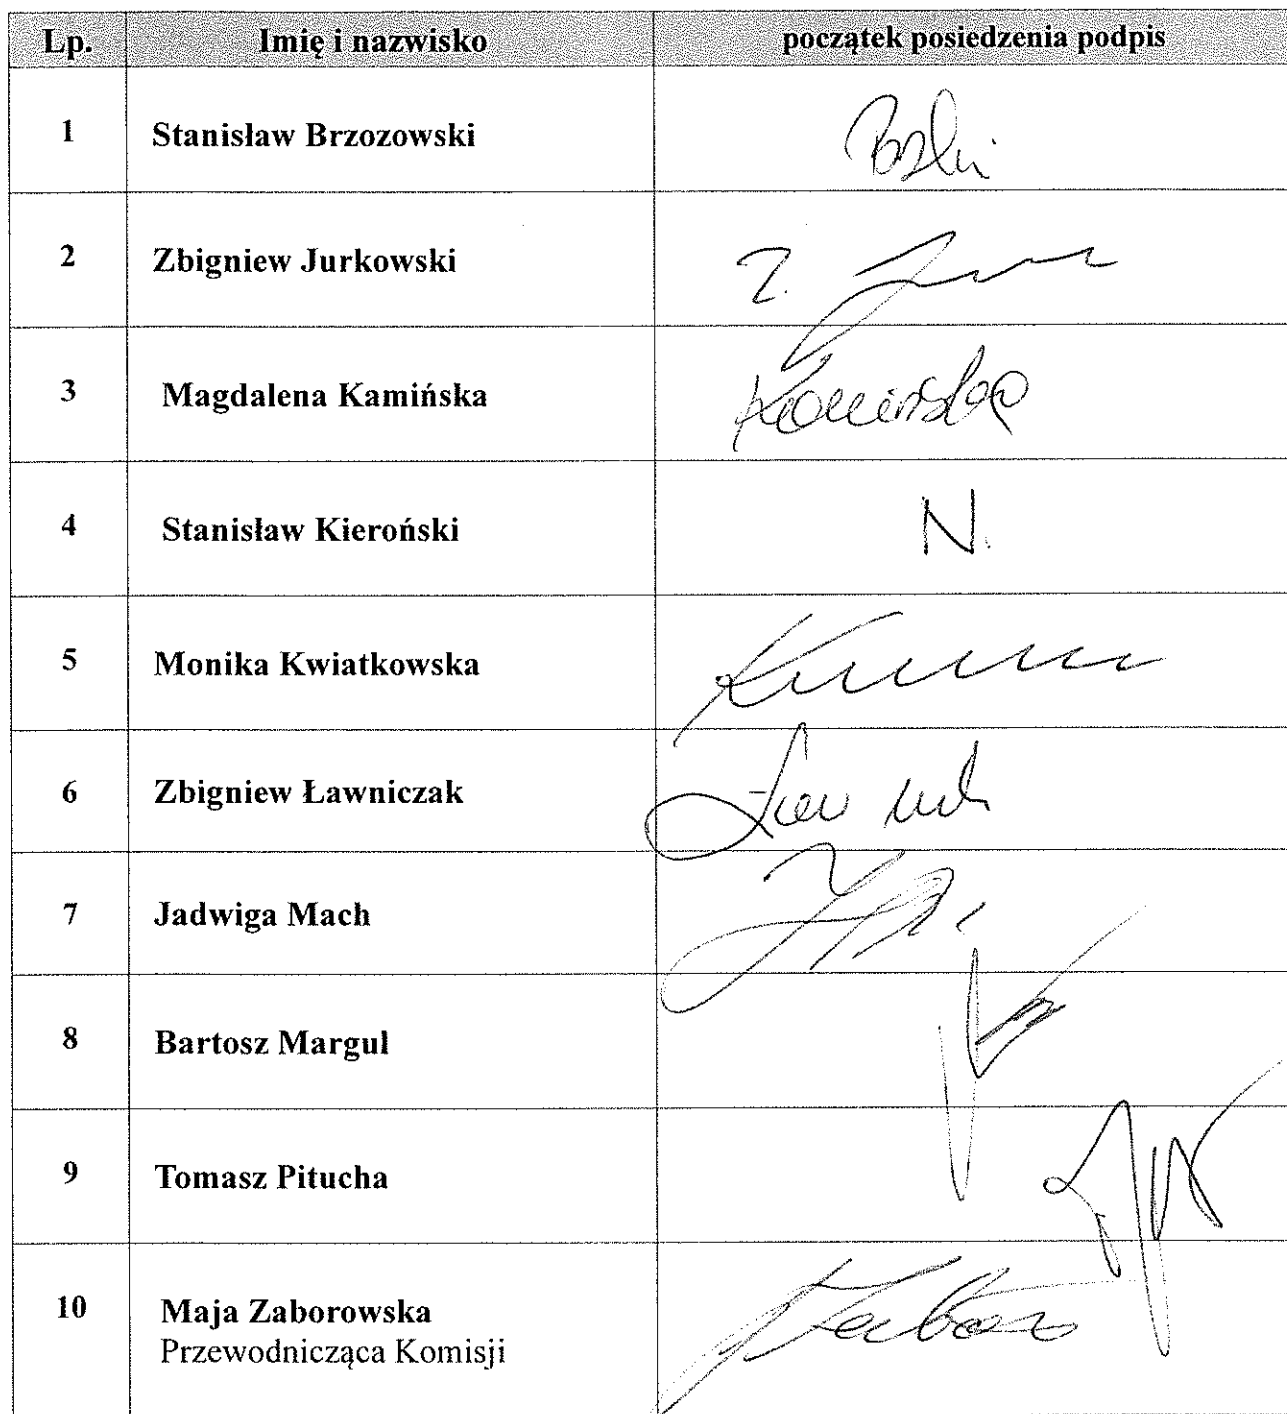 Lp. Imię i nazwisko początek posiedzenia podpis
1 Stanisław Brzozowski
2 Zbigniew Jurkowski Z.
3 Magdalena Kamińska Kamińska
4 Stanisław Kieroński N.
5 Monika Kwiatkowska
6 Zbigniew Ławniczak
7 Jadwiga Mach
8 Bartosz Margul
9 Tomasz Pitucha
10 Maja Zaborowska
Przewodnicząca Komisji